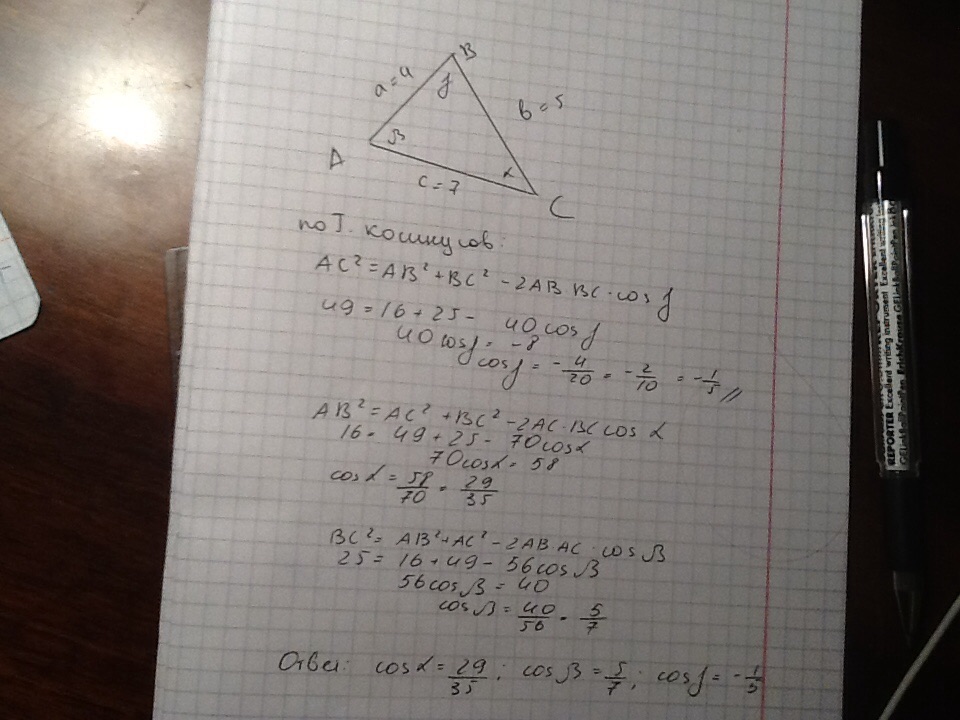 B
a = 4
γ
в = 5
β
A
α
c = 7
C
по Т. косинусов:
AC² = AB² + BC² - 2AB BC · cos γ
49 = 16 + 25 - 40 cos γ
40 cos γ = -8
cos γ = -4/20 = -2/10 = -1/5 //
AB² = AC² + BC² - 2AC · BC cos α
16 = 49 + 25 - 70 cos α
70 cos α = 58
cos α = 58/70 = 29/35
BC² = AB² + AC² - 2AB AC · cos β
25 = 16 + 49 - 56 cos β
56 cos β = 40
cos β = 40/56 = 5/7
Ответ: cos α = 29/35; cos β = 5/7; cos γ = -1/5
REPORTER Excellent writing instrument Excellent wri